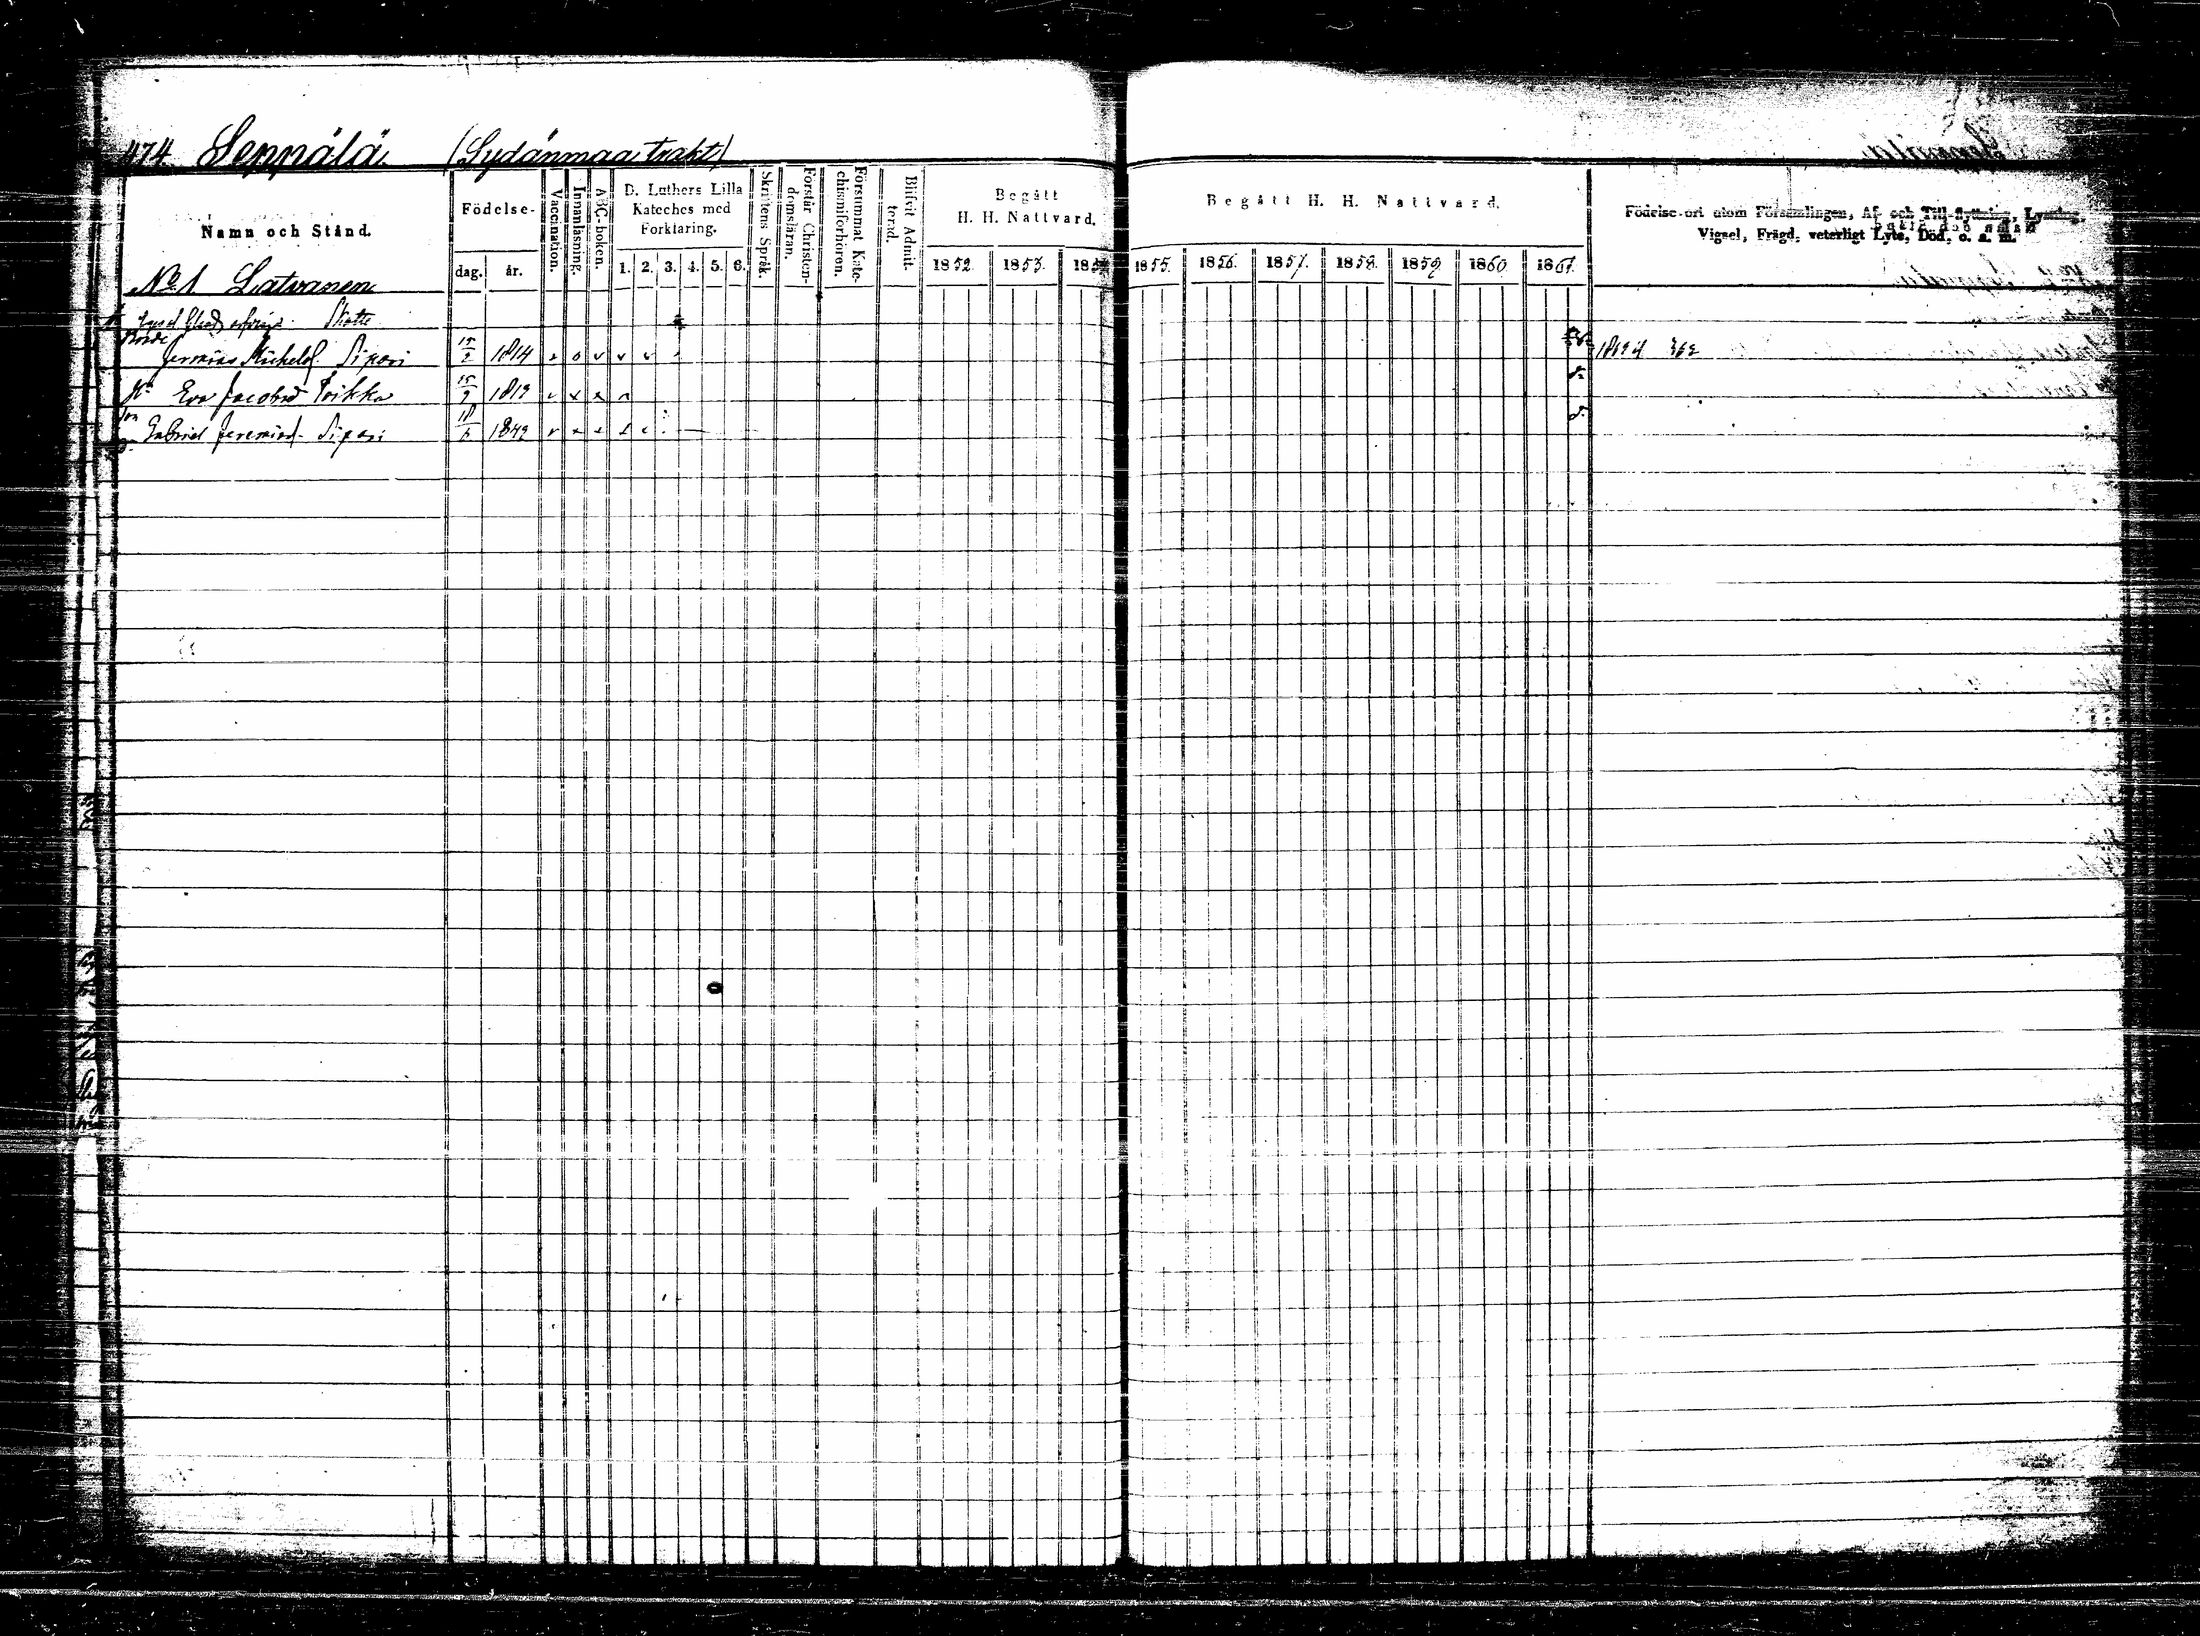 474. Seppälä (Sydänmaa trakt)
Namn och Stånd.
Födelse-
dag. år.
Vaccination.
Innanläsning.
ABC-boken.
D. Luthers Lilla
Kateches med
Förklaring.
1. 2. 3. 4. 5. 6.
Skriftens Språk.
Förstår Christen-
domsläran.
Försummat Kate-
chismiförhören.
Blifvit Admit-
terad.
Begått
H. H. Nattvard.
1852. 1853. 1854
Begått H. H. Nattvard.
1855. 1856. 1857. 1858. 1859. 1860. 1861.
Födelse-ort utom Församlingen, Af- och Till-flyttning, Lysning,
Vigsel, Frägd, veterligt Lyte, Död, o. s. m.
No. 1 Latvanen
Bonde
Jeremias Michelss. Sipari 15/2 1814
Eva Jacobsd Toikka 15/9 1819
Son
Gabriel Jeremiss. Sipari 18 1842